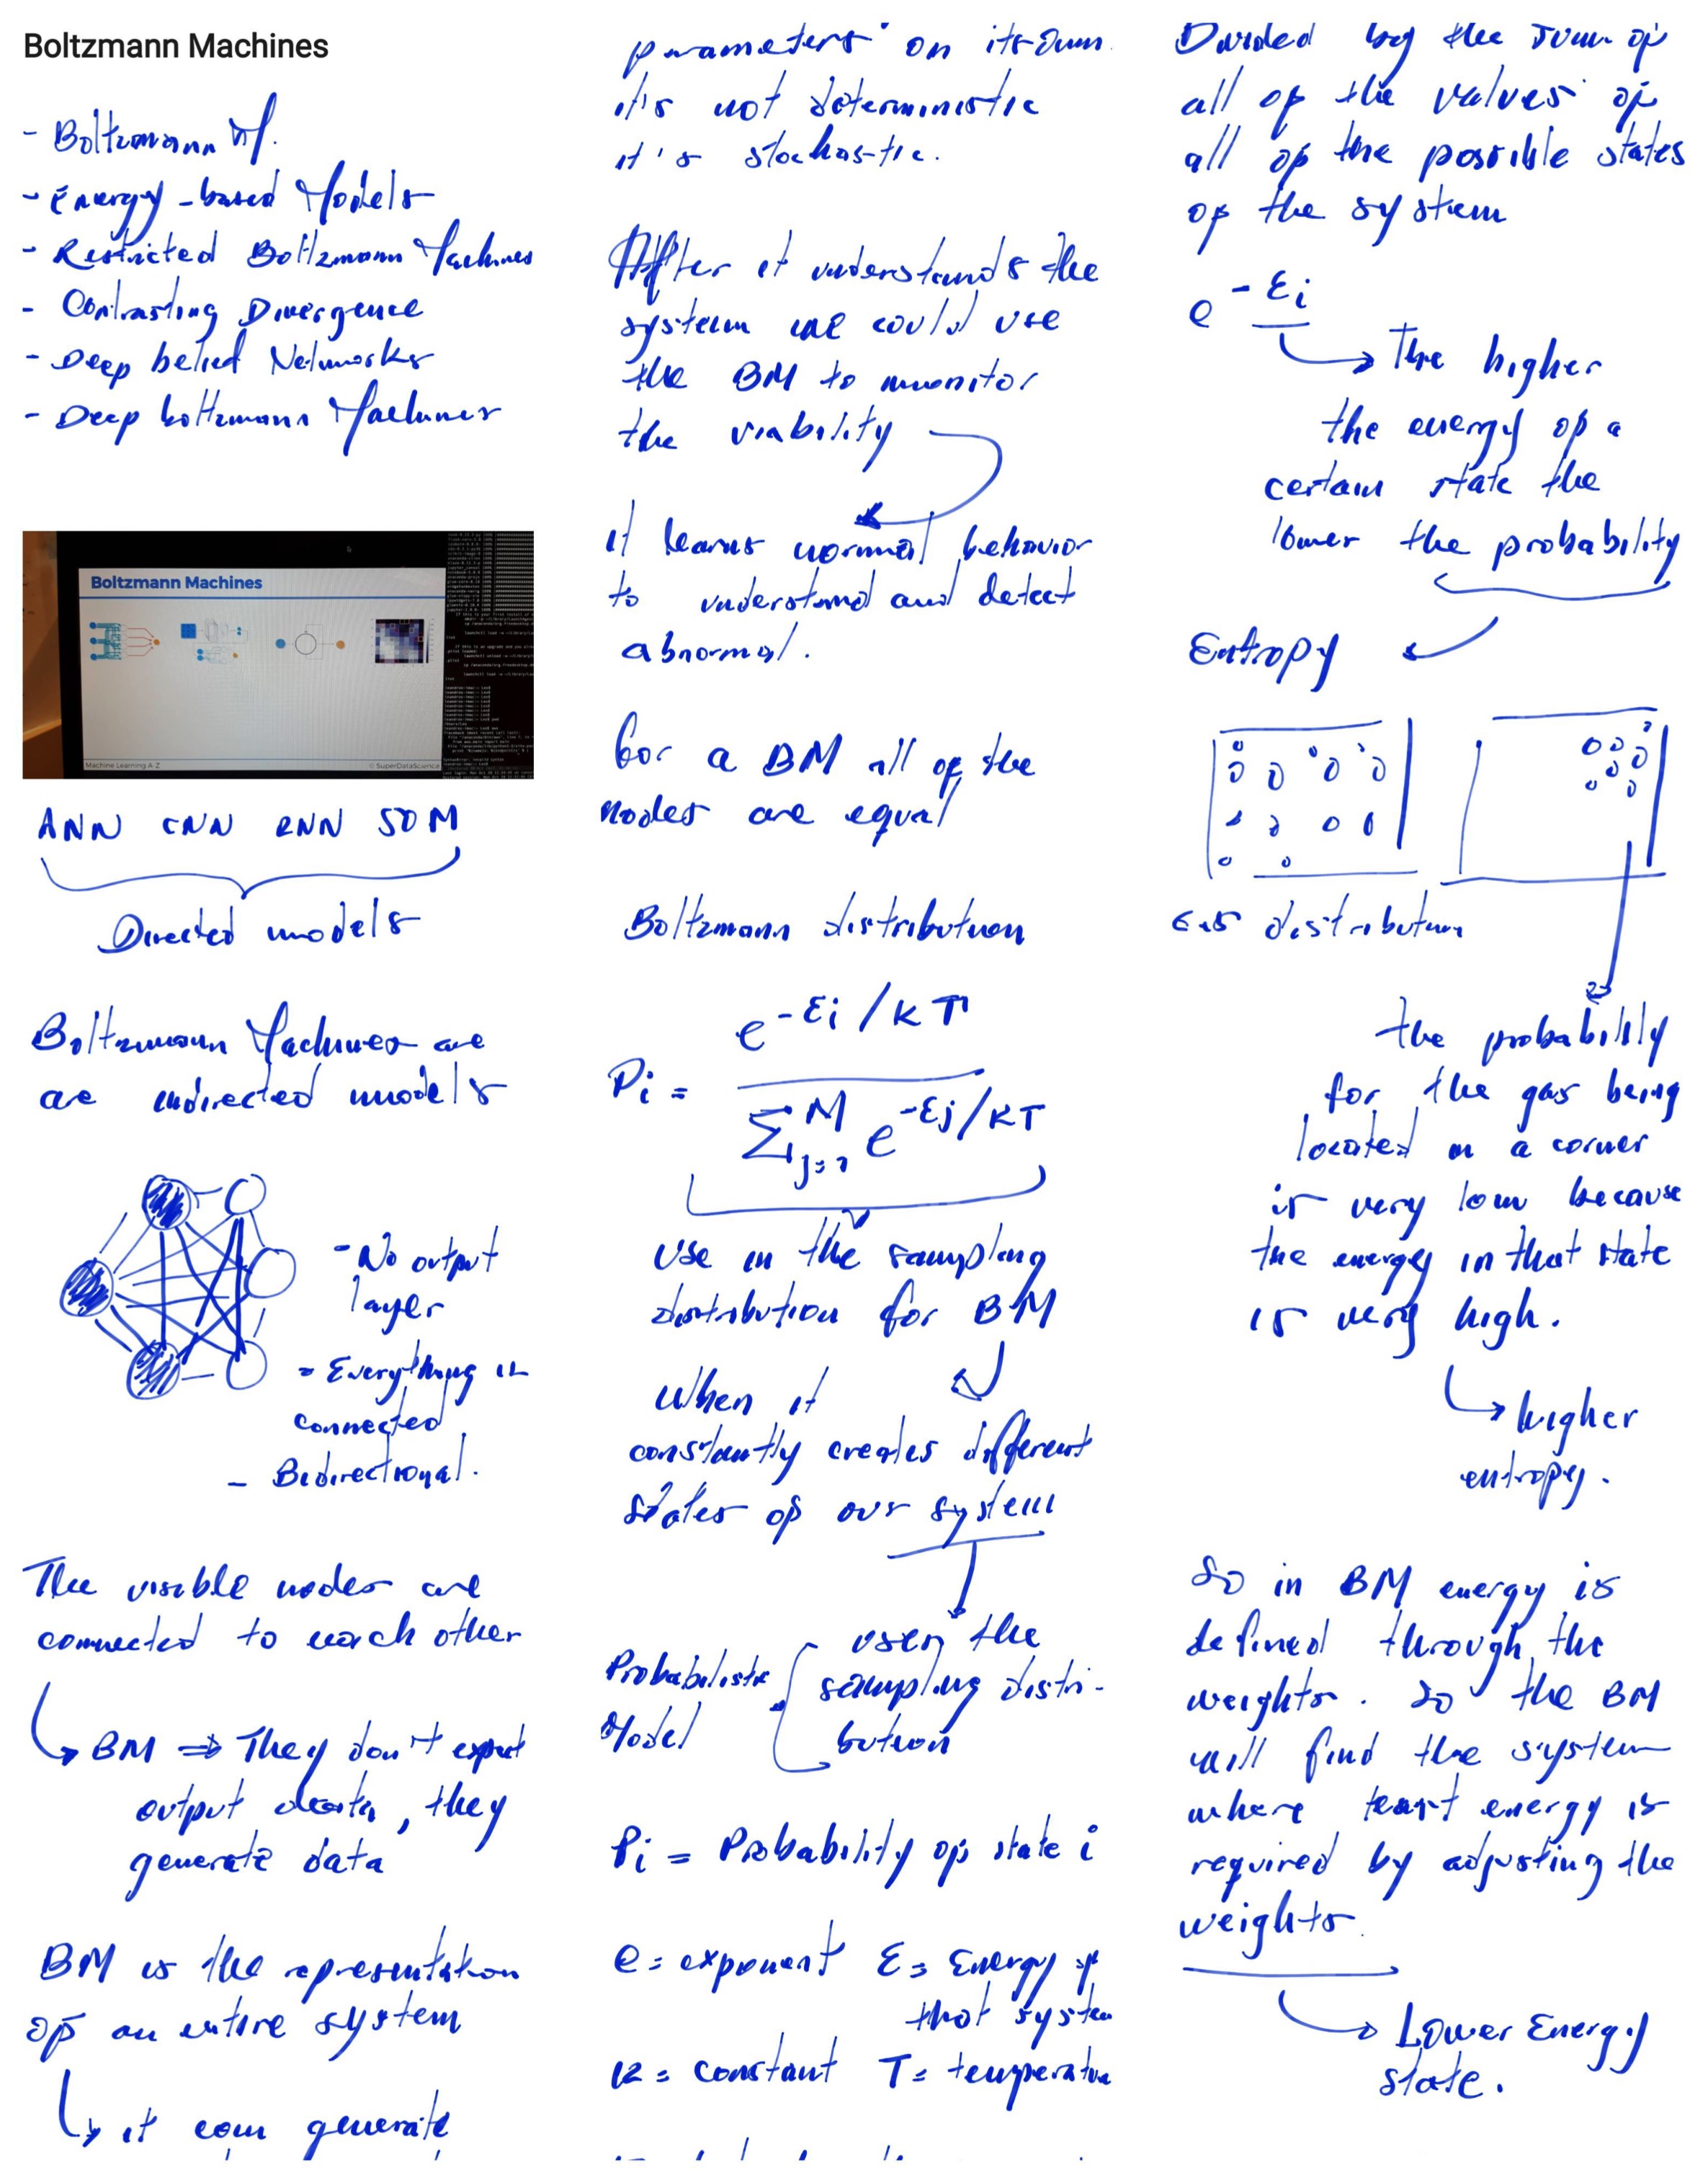 Boltzmann Machines
- Boltzmann M.
- Energy-based Models
- Restricted Boltzmann Machines
- Contrasting Divergence
- Deep belief Networks
- Deep boltzmann Machines
Boltzmann Machines
Machine Learning A-Z
© SuperDataScience
ANN CNN RNN SOM
Directed models
Boltzmann Machines are
are undirected models
- No output
layer
- Everything is
connected
- Bidirectional.
The visible nodes are
connected to each other
BM ⇒ They don't expect
output data, they
generate data
BM is the representation
of an entire system
it can generate
parameters on its own
it's not deterministic
it's stochastic.
After it understands the
system we could use
the BM to monitor
the viability
it learns normal behavior
to understand and detect
abnormal.
for a BM all of the
nodes are equal
Boltzmann distribution
e^-Ei/kT
Pi =
∑ M j=1 e^-Ej/kT
use in the sampling
distribution for BM
When it
constantly creates different
states of our system
Probabilistic
Model
using the
sampling distri-
bution
Pi = Probability of state i
e = exponent E = Energy of
that system
k = constant T = temperature
Divided by the sum of
all of the values of
all of the possible states
of the system
e^-Ei
The higher
the energy of a
certain state the
lower the probability
Entropy
Gas distribution
the probability
for the gas being
located in a corner
is very low because
the energy in that state
is very high.
higher
entropy.
So in BM energy is
defined through the
weights. So the BM
will find the system
where least energy is
required by adjusting the
weights.
Lower Energy
state.